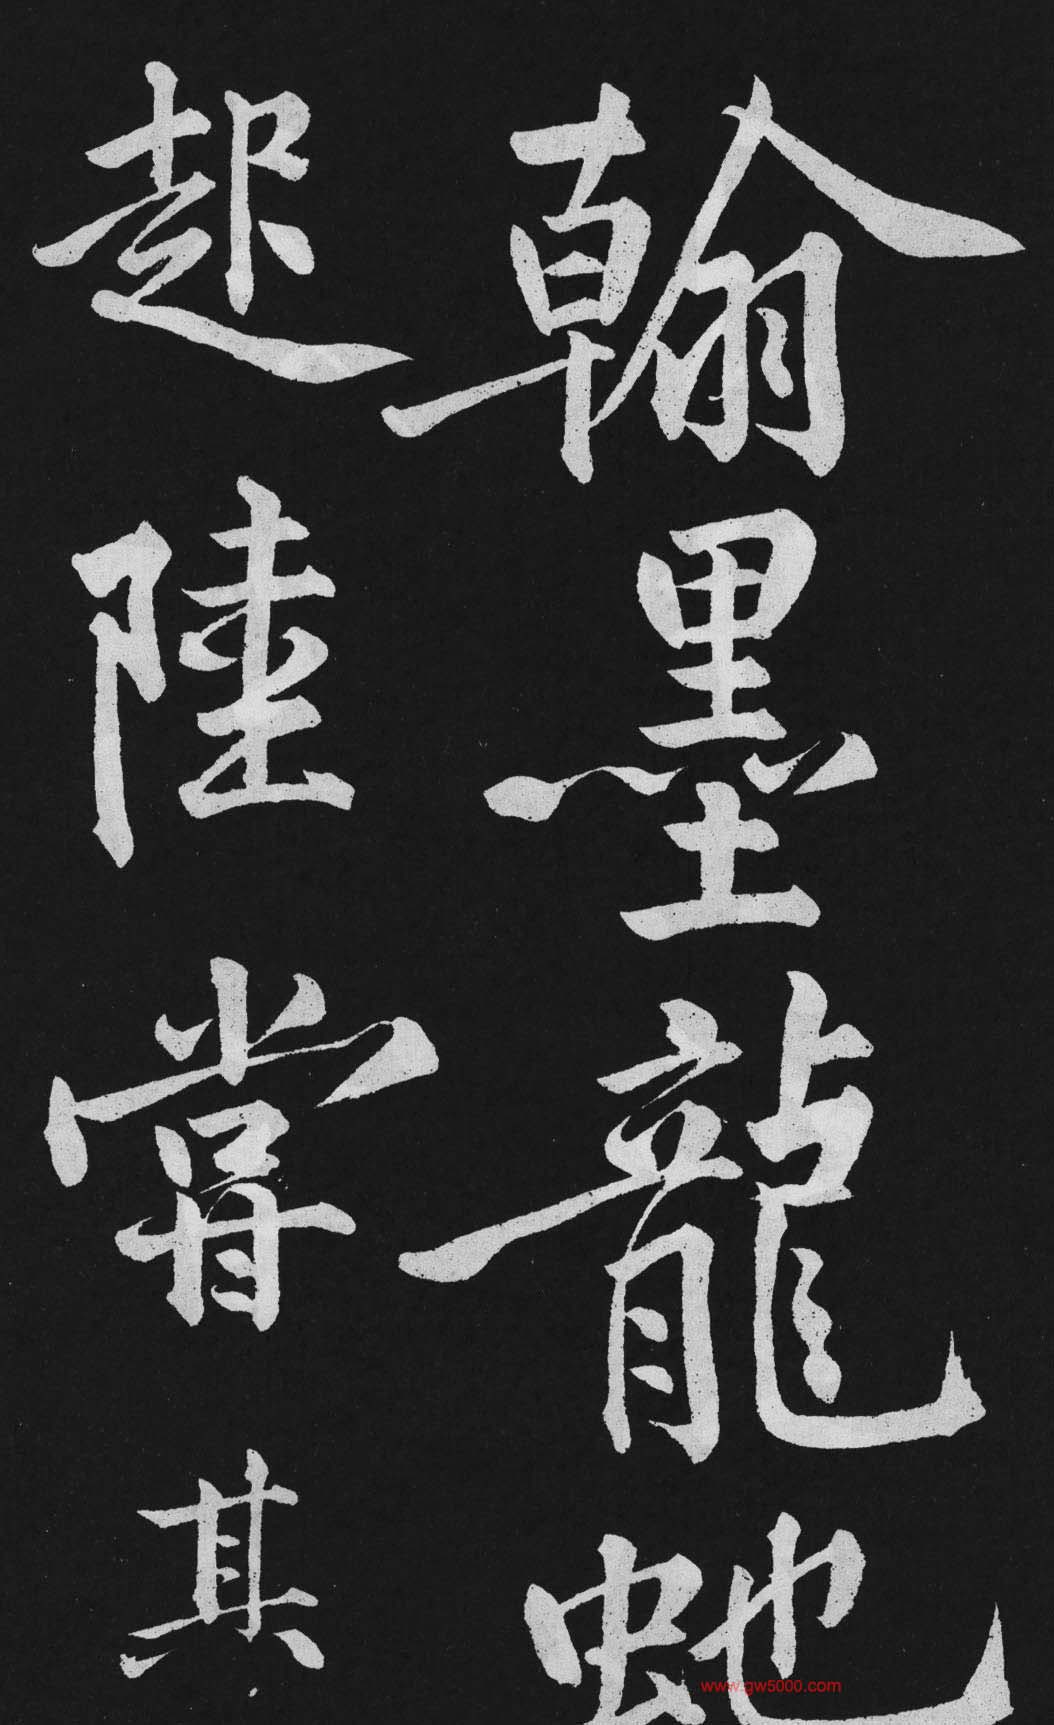 翰墨龍虵
起陸嘗其
www.gw5000.com